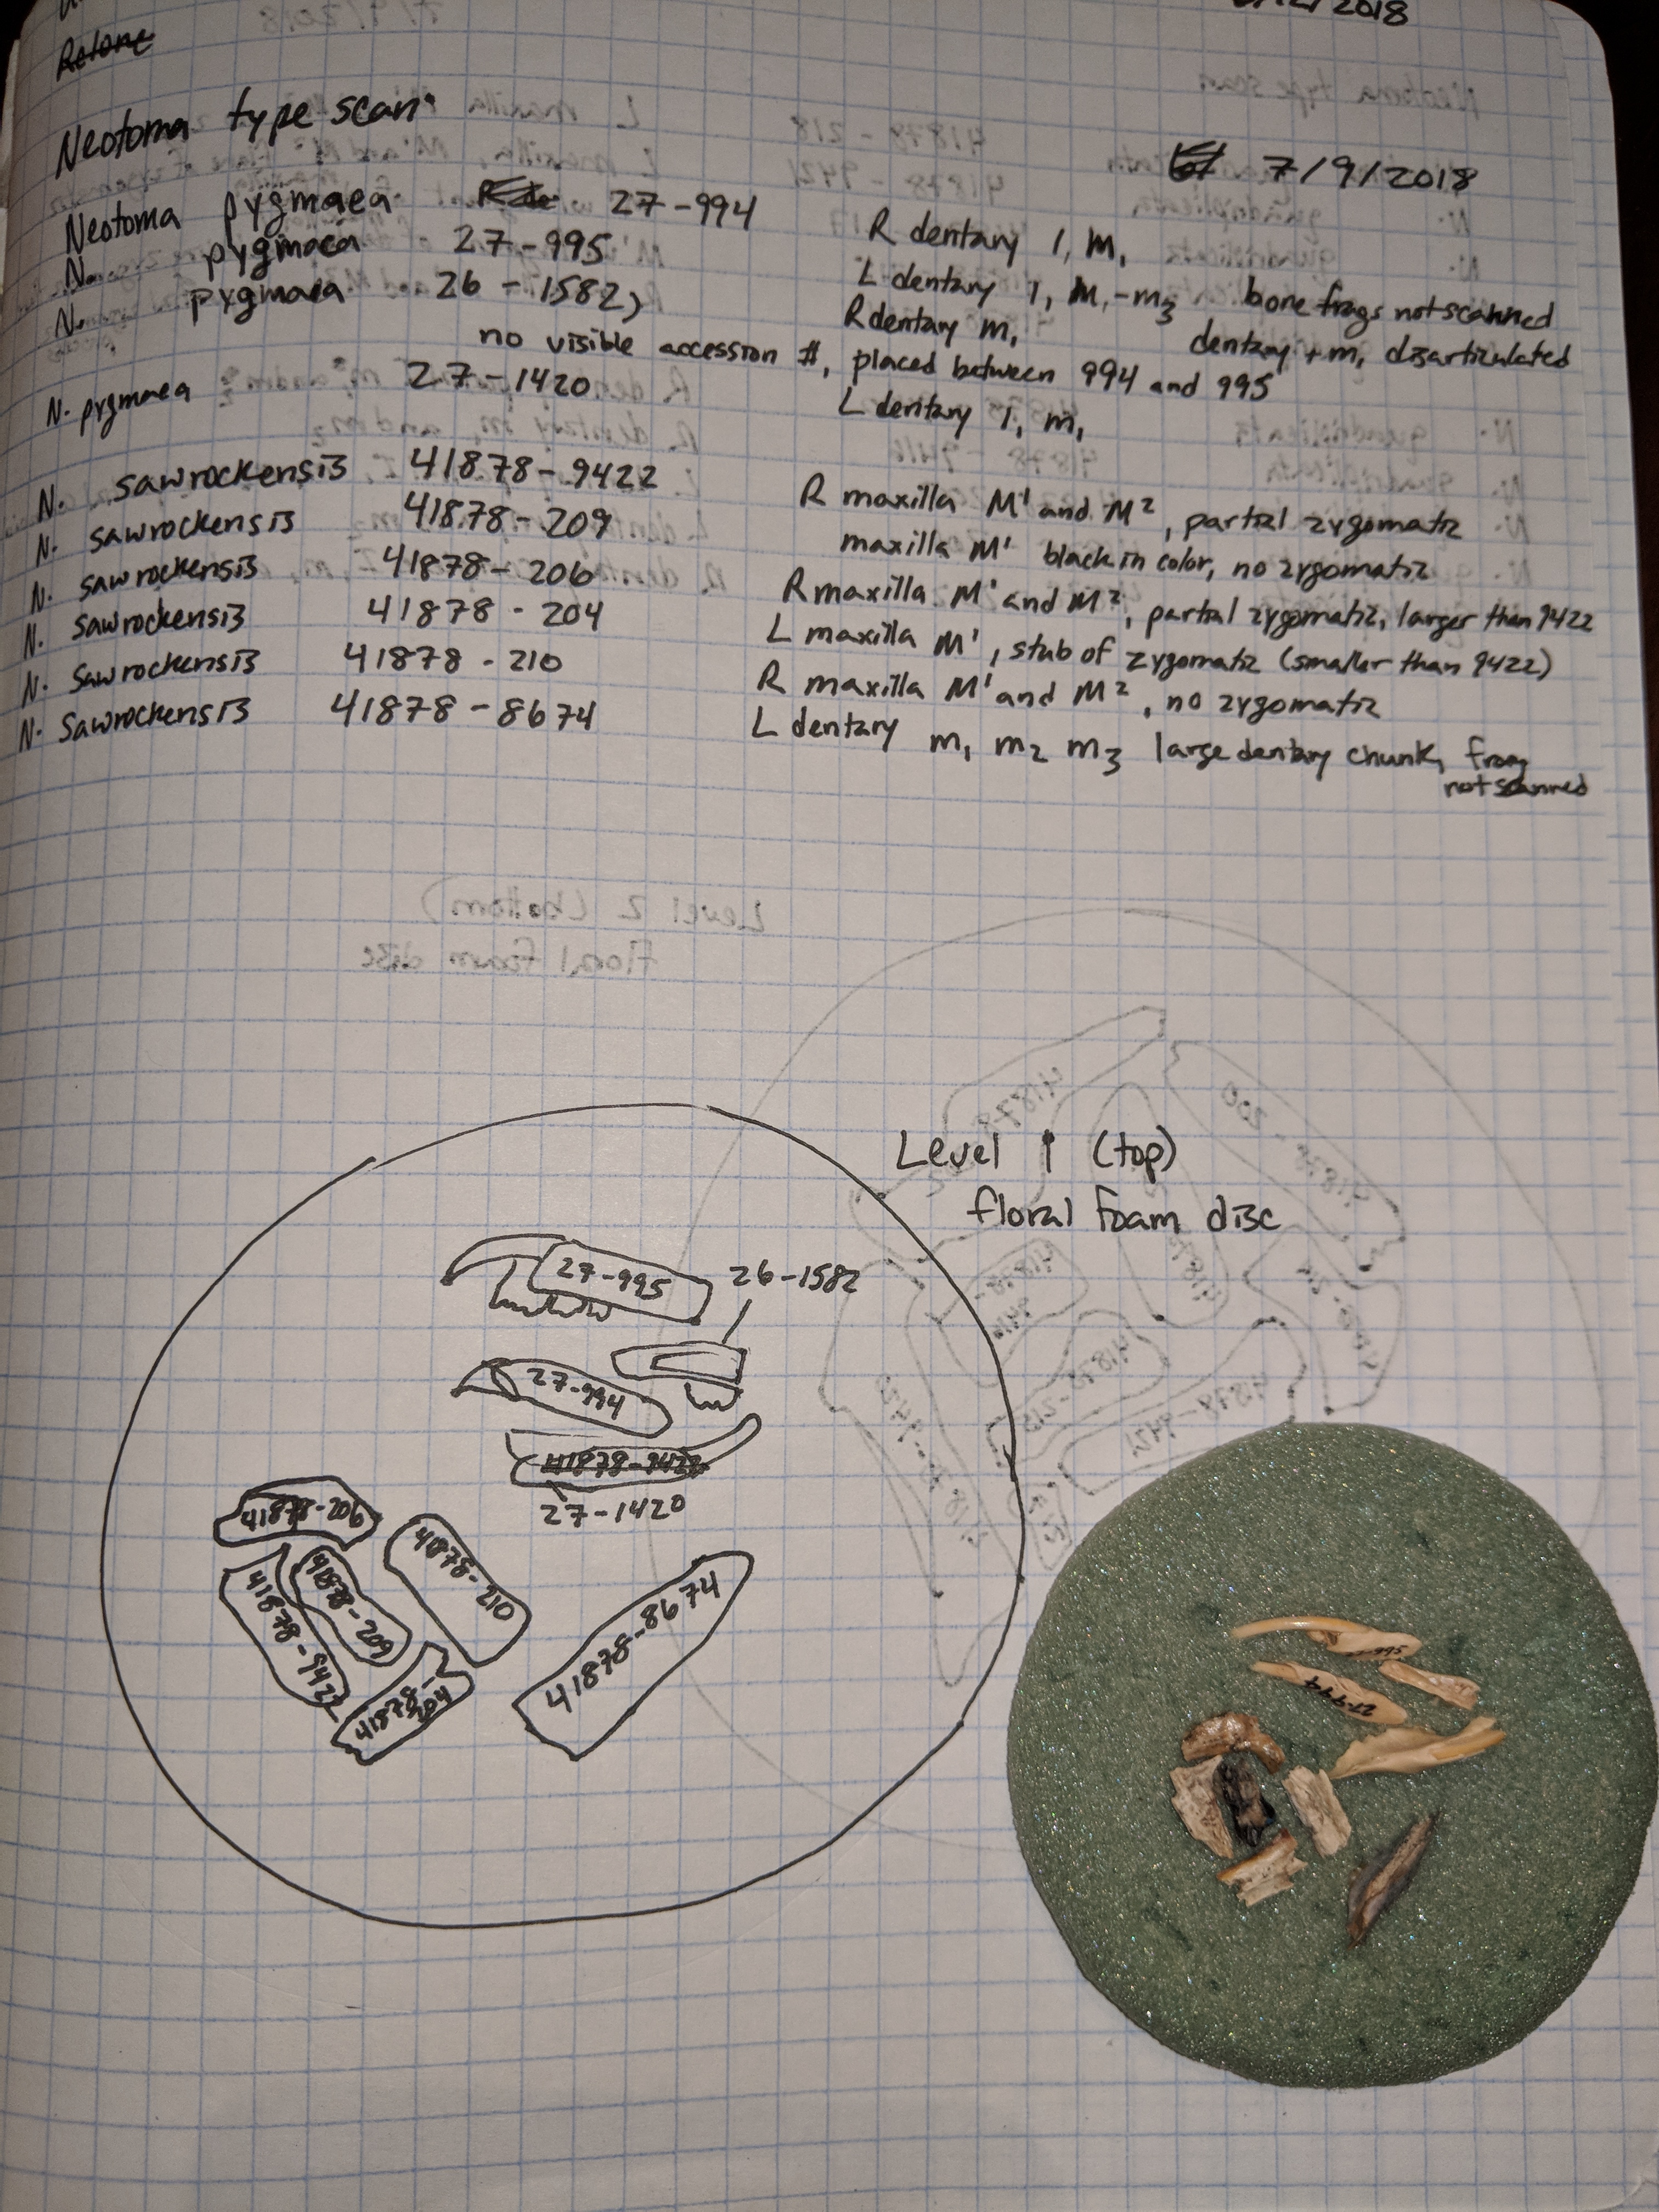 /2018
Retone
Neotoma type scan
7/9/2018
Neotoma pygmaea 27-994 R dentary 1, m,
N. pygmaea 27-995 L dentary 1, m,-m3 bone frags not scanned
N. pygmaea 26-1582, R dentary m, dentary + m, disarticulated
no visible accession #, placed between 994 and 995
N. pygmaea 27-1420 L dentary 1, m,
N. sawrockensis 41878-9422 R maxilla M¹ and M², partial zygomatic
N. sawrockensis 41878-209 maxilla M¹ black in color, no zygomatic
N. sawrockensis 41878-206 R maxilla M¹ and M², partial zygomatic, larger than 9422
N. sawrockensis 41878-204 L maxilla M¹, stub of zygomatic (smaller than 9422)
N. sawrockensis 41878-210 R maxilla M¹ and M², no zygomatic
N. sawrockensis 41878-8674 L dentary m1 m2 m3 large dentary chunk, frag
not scanned
Level 2 (bottom)
floral foam disc
Level 1 (top)
floral foam disc
27-995
26-1582
27-994
41878-9422
27-1420
41878-206
41878-210
41878-209
41878-9422
41878-204
41878-8674
995
27-994